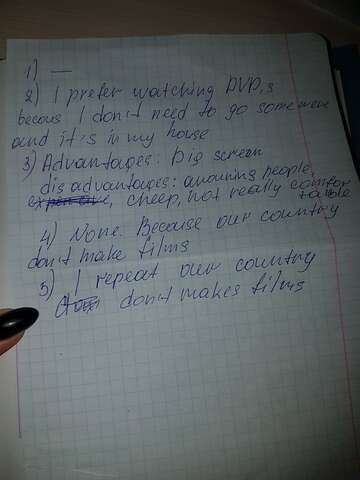 1) —
2) I prefer watching DVD,s
becous I don't need to go somewere
and it's in my house
3) Advantages: Big screen
disadvantages: anouing people,
expencive, cheep, not really comfor
table
4) None. Because our country
don't make films
5) I repeat our country
don't makes films